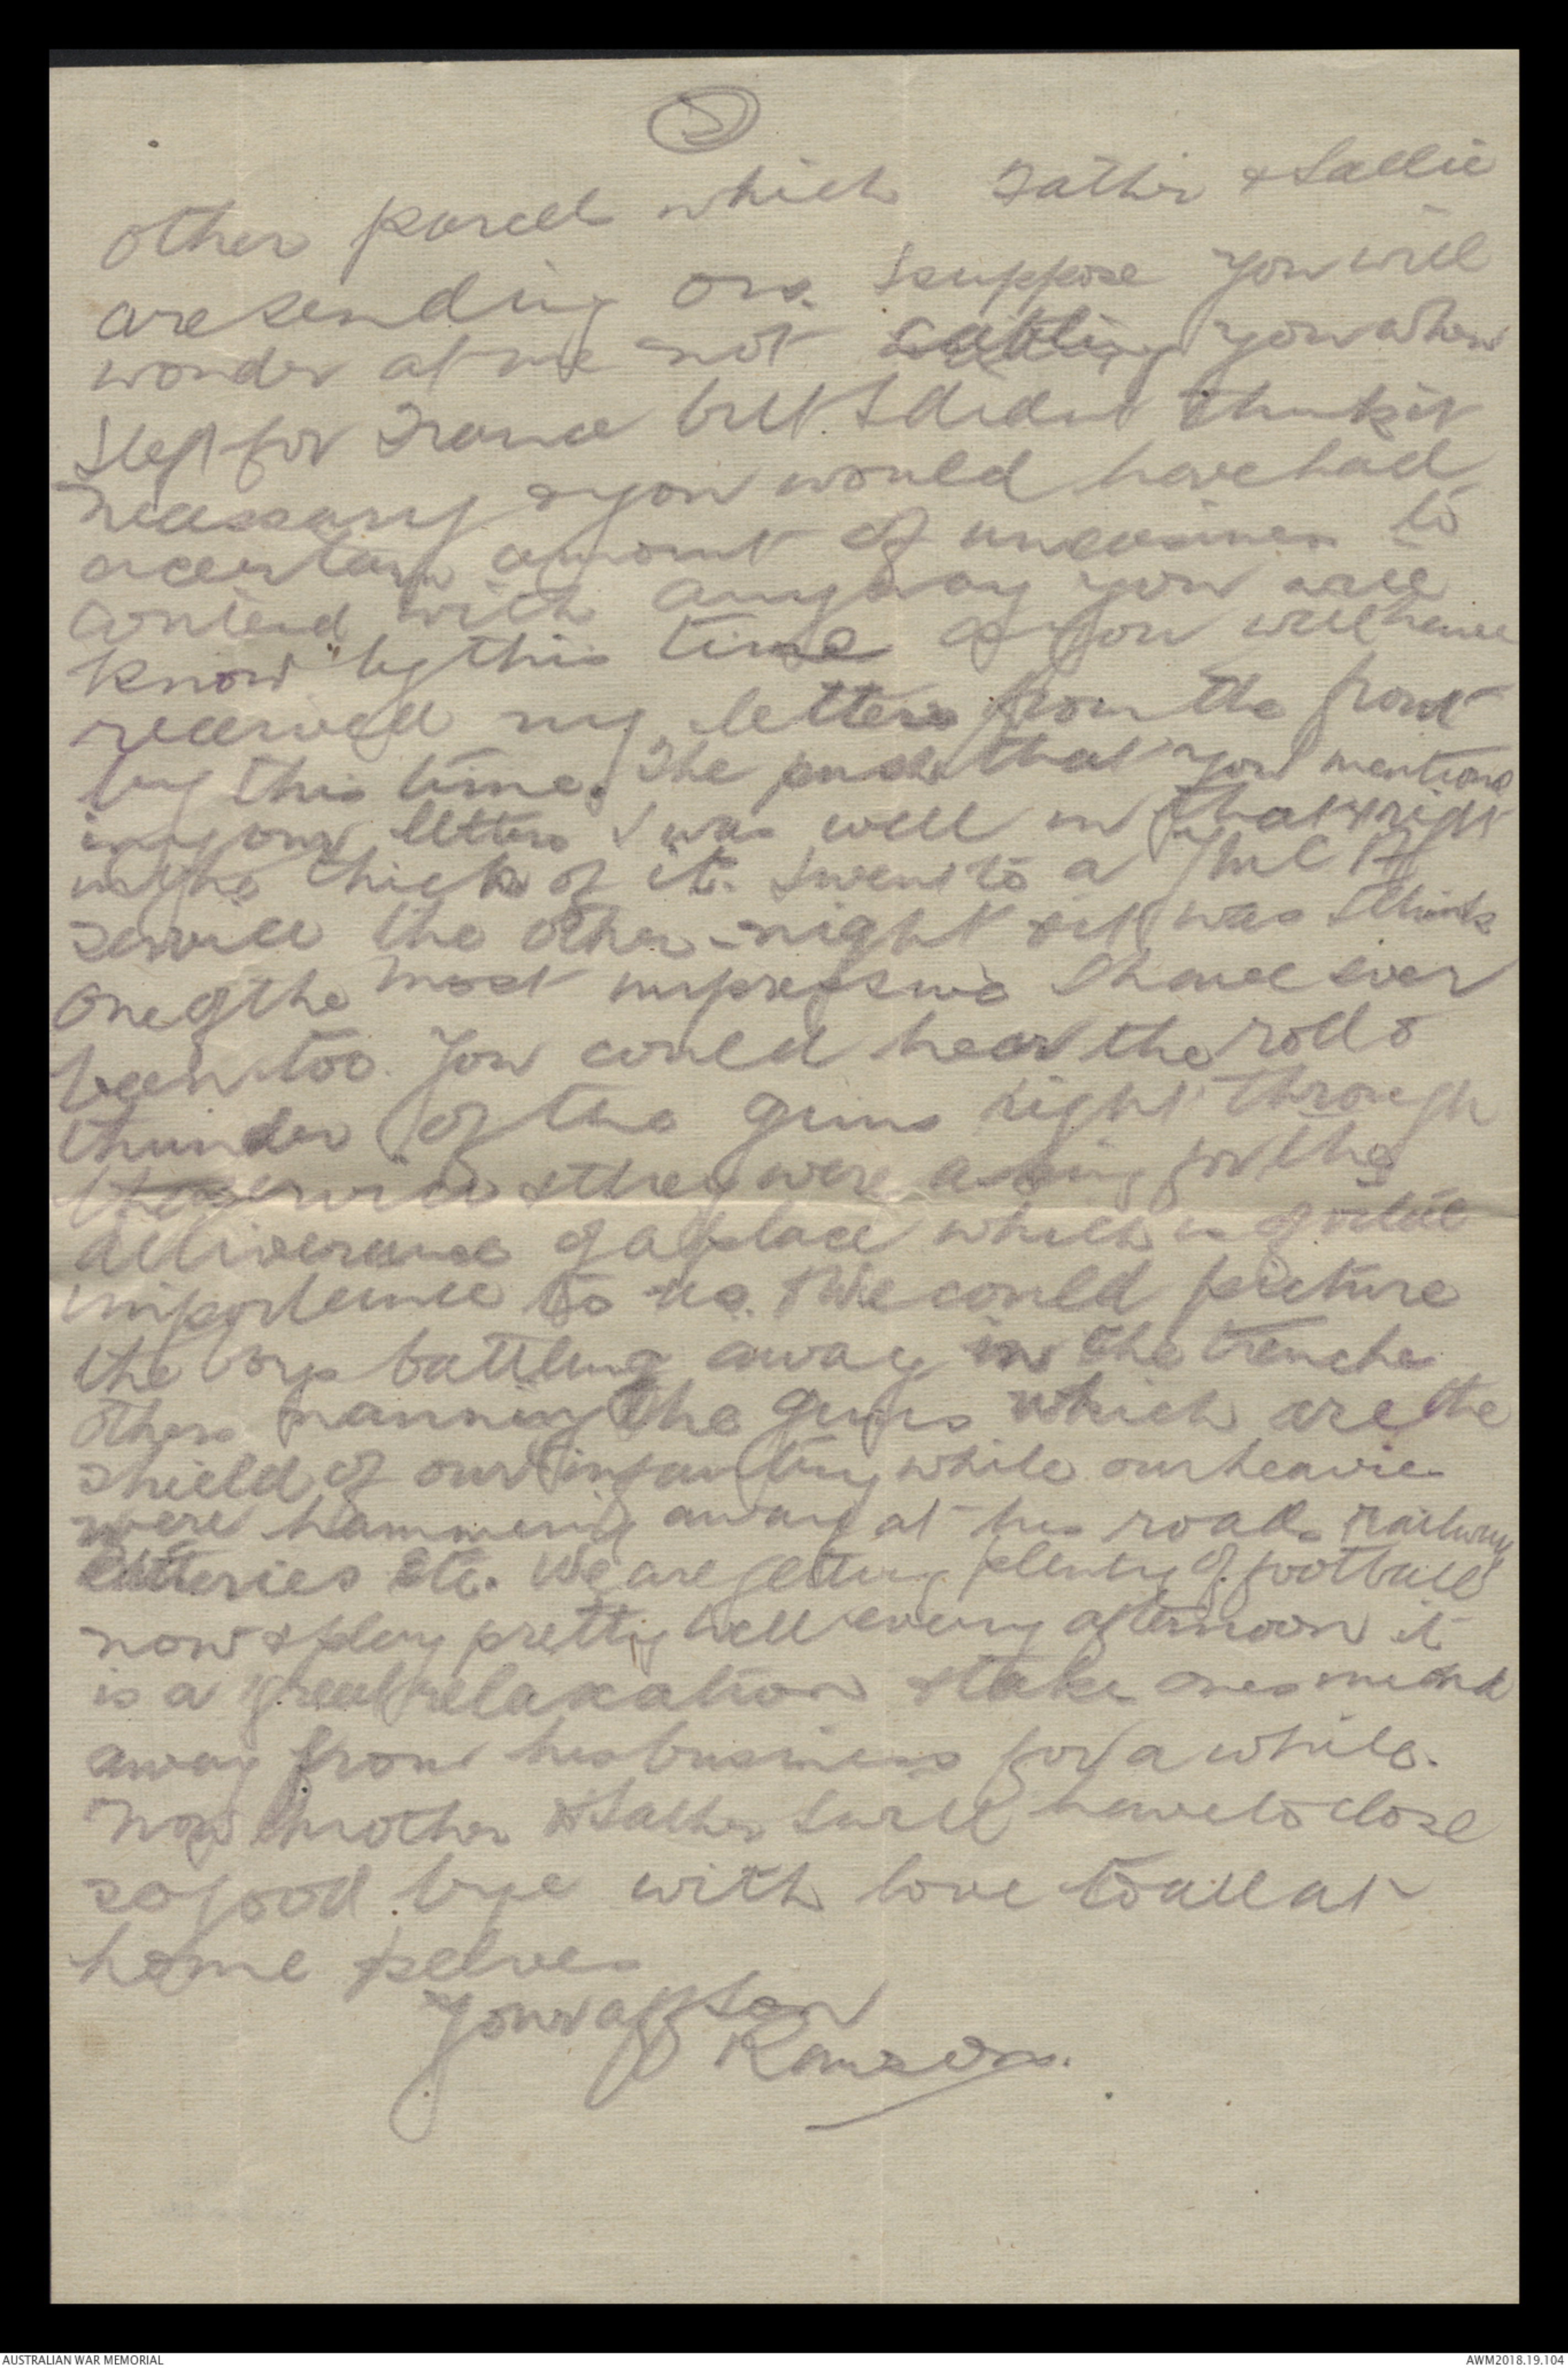 5
other parcel which Father & Sallie
are sending on. I suppose you will
wonder at me not cabling you when
I left for France but I didnt think it
necessary & you would have had
a certain amount of uneasiness to
contend with anyway you will
know by this time as you will have
received my letters from the front
by this time. The push that you mention
in your letters I was well in that & right
in the thick of it. I went to a YMCA
service the other night & it was I think
one of the most impressive I have ever
been too. You could hear the roll &
thunder of the guns right through
the service & they were asking for the
deliverance of a place which is of vital
importance to us. & We could picture
the boys battling away in the trenches
others manning the guns which are the
shield of our infantry while our heavies
were hammering away at his roads railways
batteries etc. We are getting plenty of football
now & play pretty well every afternoon it
is a great relaxation & takes ones mind
away from his business for a while.
Now Mother & Father I will have to close
so good bye with love to all at
home & selves
Your aff Son
Ranson.
AUSTRALIAN WAR MEMORIAL
AWM2018.19.104